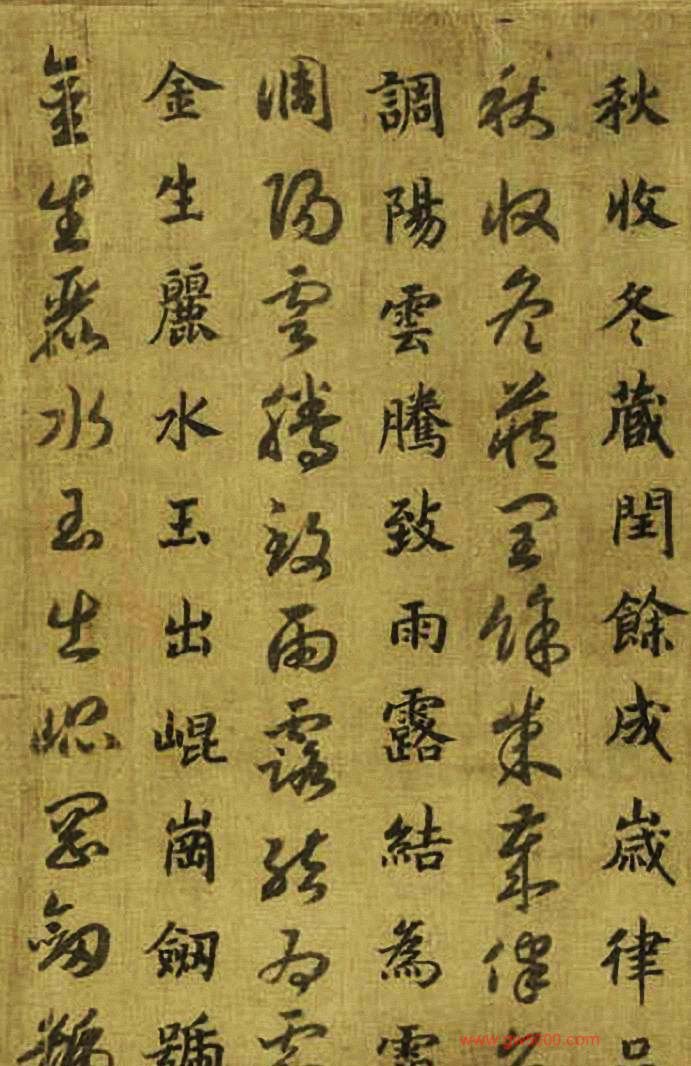 秋收冬藏閏餘成歲律
秋收冬藏閏餘成歲律
調陽雲騰致雨露結為
調陽雲騰致雨露結為
金生麗水玉出崐崗劒號
金生麗水玉出崐崗劒號